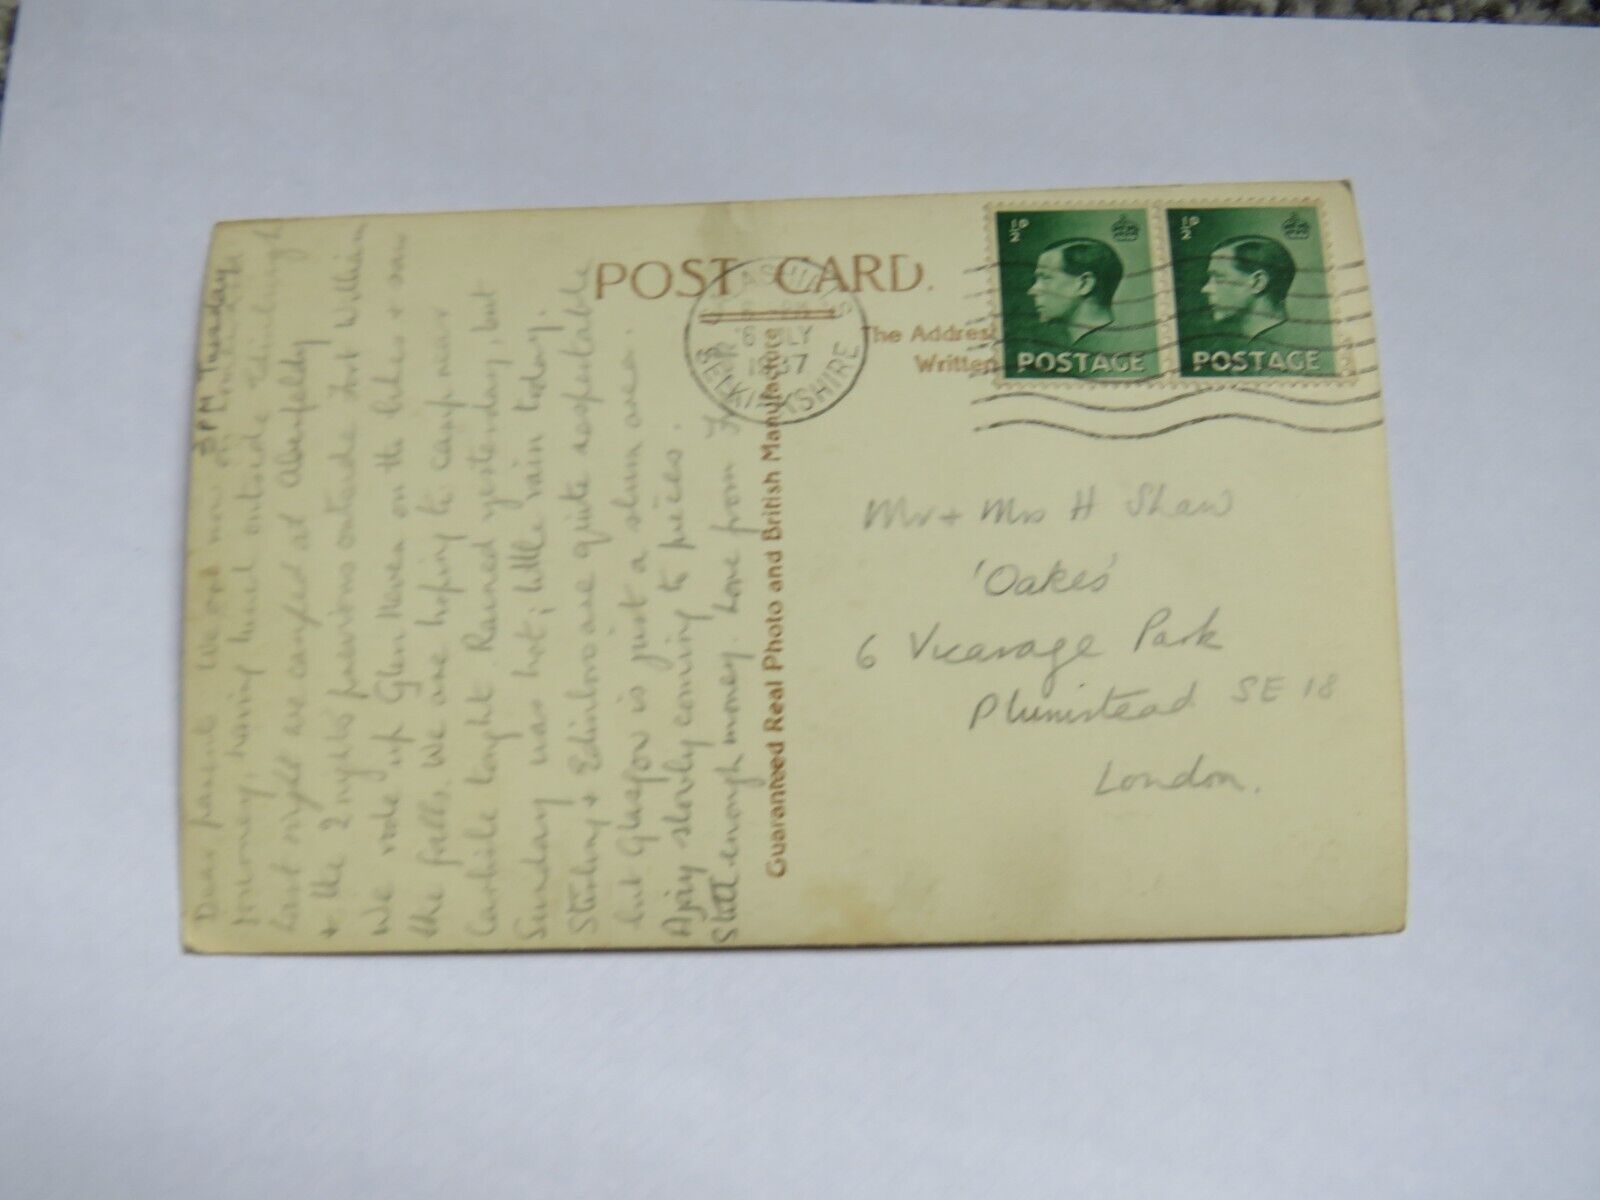 POST CARD.
The Address
Written
½D
POSTAGE
½D
POSTAGE
JLY
1937
SELKIRKSHIRE
Guaranteed Real Photo and British Manufacture
3 PM Tuesday
Dear parents We are now on
journey, having lunch outside Edinburgh
Last night we camped at Aberfeldy
+ the 2 nights previous outside Fort William
We rode up Glen Neven on the bikes + saw
the falls. We are hoping to camp near
Carlisle tonight. Rained yesterday, but
Sunday was hot; little rain today.
Stirling + Edinboro are quite respectable
but Glasgow is just a slum area.
slowly coming to pieces.
Still enough money. Love from
Mr + Mrs H Shaw
'Oakes'
6 Vicarage Park
Plumstead SE 18
London.